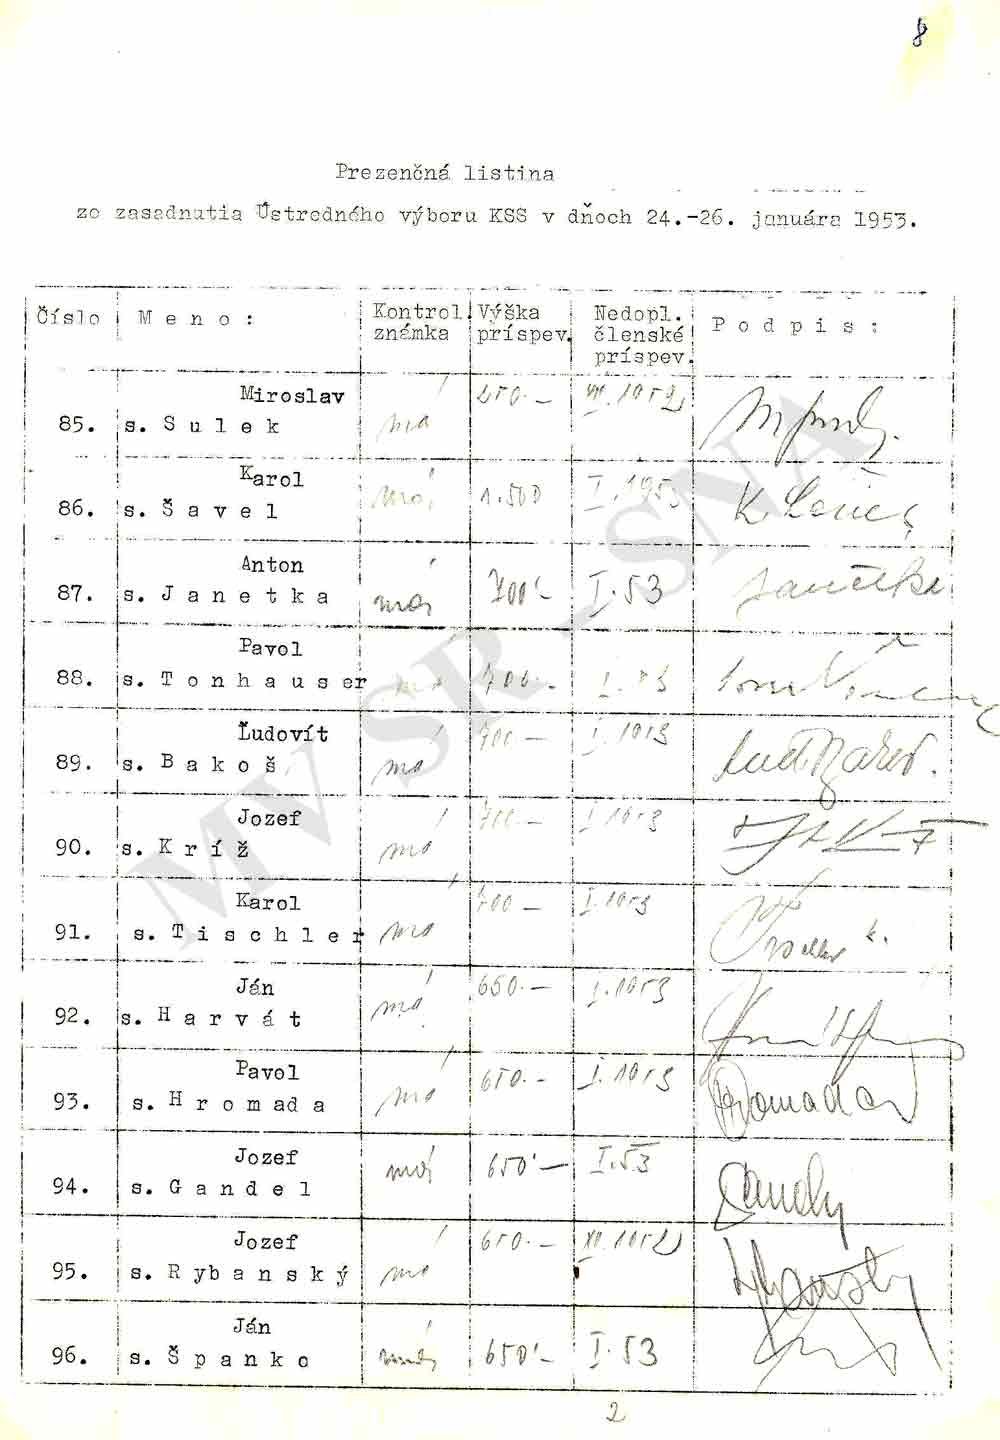 8
Prezenčná listina
zo zasadnutia Ústredného výboru KSS v dňoch 24.-26. januára 1953.
Číslo Meno: Kontrol. známka Výška príspev. Nedopl. členské príspev. Podpis:
Miroslav
85. s. Sulek má 450.- XII.1952
Karol
86. s. Šavel má 1.500 I.1953
Anton
87. s. Janetka má 700'- I.53
Pavol
88. s. Tonhauser má 700.- I.53
Ľudovít
89. s. Bakoš má 700.- I.1953
Jozef
90. s. Kríž má 700.- I.1953
Karol
91. s. Tischler má 700- I.1953
Ján
92. s. Harvát má 650.- I.1953
Pavol
93. s. Hromada má 650.- I.1953 Hromada
Jozef
94. s. Gandel má 650'- I.53
Jozef
95. s. Rybanský má 650.- XII.1952
Ján
96. s. Španko má 650'- I.53
2
MV SR - SNA